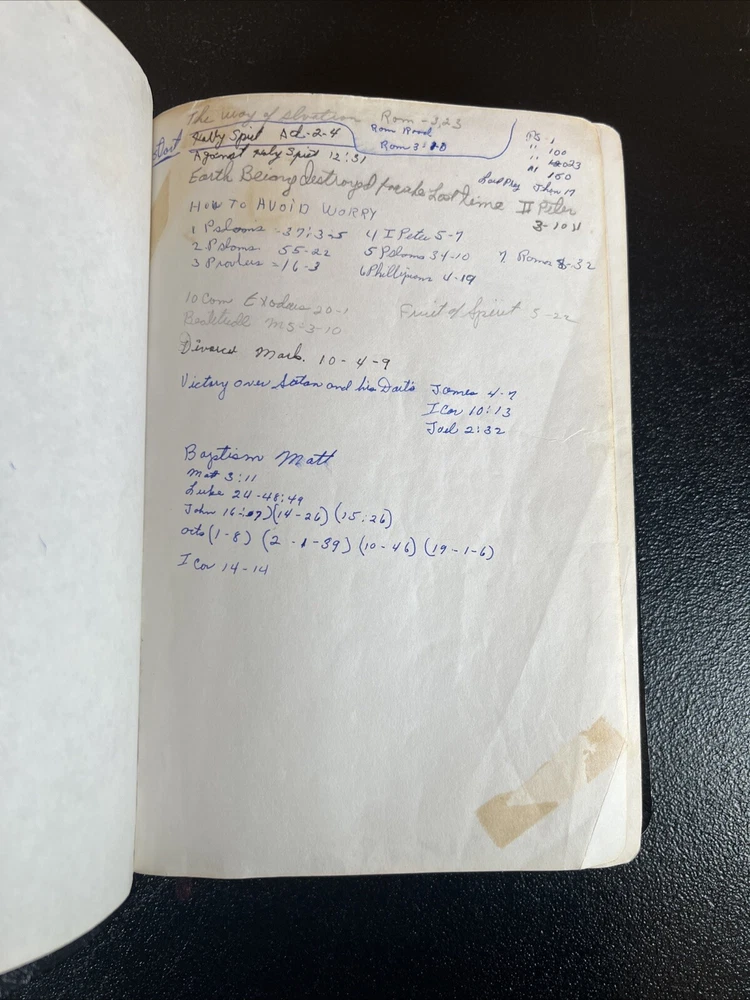 The way of slvation Rom - 3,23
Start Holy Spirit Act-2-4 Rom Road
Rom 3:10
Against Holy Spirit 12:31
PS - 1
" 100
" 23
" 150
Lord Pray John 17
Earth Being destroyed Last time II Peter
3-10 11
HOW TO AVOID WORRY
1 Psloms -37:3-5 4 I Peter 5-7
2 Psloms. 55-22 5 Psloms 34-10 7 Romes 8-32
3 Provlus =16-3 6 Phillipians 4-19
10 Com Exodous 20-1 Fruit of Spirit 5-22
Backslide 3-10
Divorce Mark. 10-4-9
Victory over Satan and his Darts James 4-7
I Cor 10:13
Joel 2:32
Baptism Matt
Mat 3:11
Luke 24-48:49
John 16:07) (14-26) (15:26)
acts (1-8) (2-1-39) (10-46) (19-1-6)
I Cor 14-14